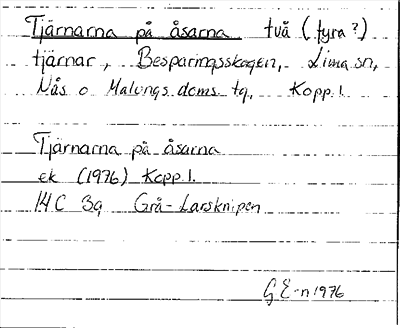 Tjärnarna på åsarna två (fyra?)
tjärnar, Besparingsskogen, Lima sn,
Nås o Malungs doms. tg, Kopp. l.
Tjärnarna på åsarna
ek (1976) Kopp. l.
14C 3a Grå-Larsknipen
G.E-n 1976